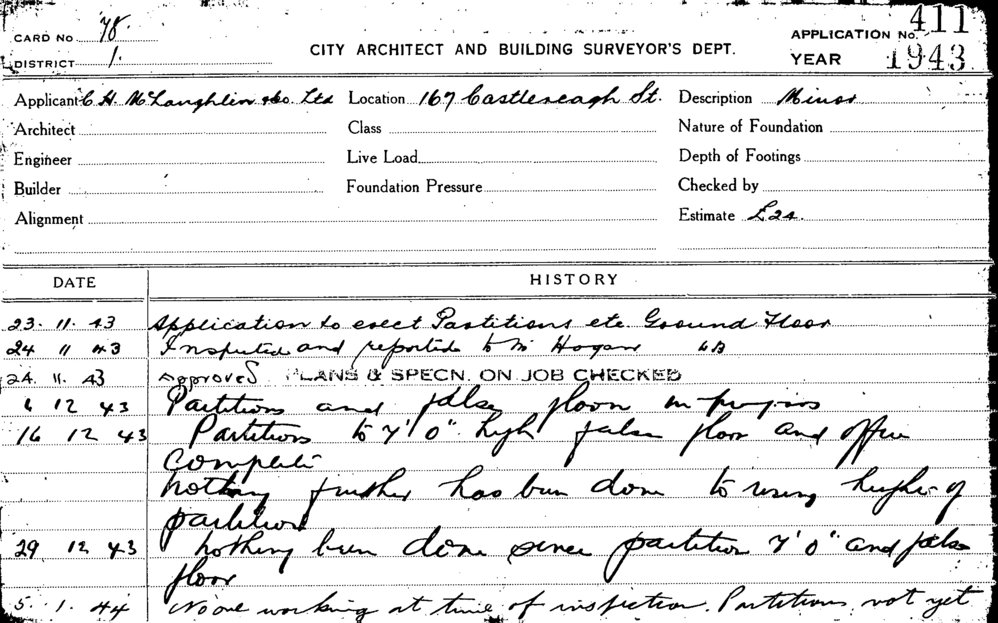 CARD No 78.
APPLICATION No. 411
DISTRICT 1.
CITY ARCHITECT AND BUILDING SURVEYOR'S DEPT.
YEAR 1943
Applicant C. H. McLaughlin & Co. Ltd Location 167 Castlereagh St. Description Minor
Architect Class Nature of Foundation
Engineer Live Load Depth of Footings
Builder Foundation Pressure Checked by
Alignment Estimate £24.
DATE HISTORY
23. 11. 43 Application to erect Partitions etc. Ground Floor
24 11 43 Inspected and reported to Mr Hogan
24. 11. 43 Approved PLANS & SPECN. ON JOB CHECKED
6 12 43 Partitions and false floor in progress
16 12 43 Partitions to 7' 0" high false floor and office
complete
nothing further has been done to rising height of
partition
29 12 43 nothing been done since partition 7' 0" and false
floor
5. 1. 44 No one working at time of inspection. Partitions not yet